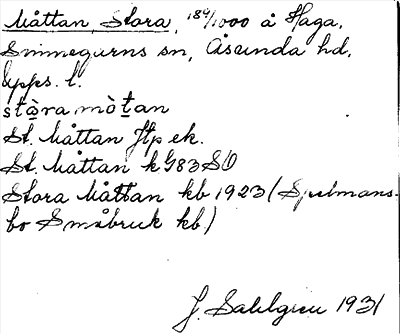 Måttan, Stora, 189/1000 å Haga,
Svinnegarns sn, Åsunda hd,
Upps. l.
stòra mòtan
St. Måttan Jtp ek.
St. Måttan k G83 SO
Stora Måttan kb 1923 (Spelmans-
bo Småbruk kb)
J. Sahlgren 1931